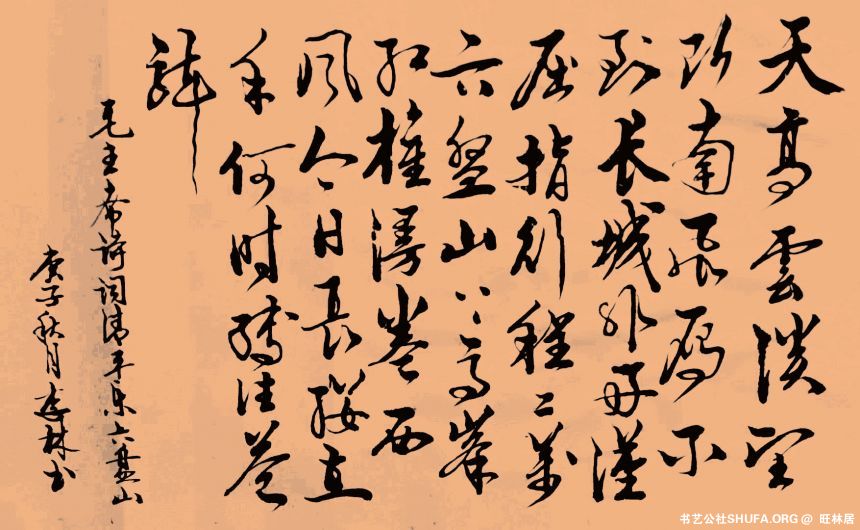 天高雲淡望
断南飛雁不
到长城外好漢
屈指行程二万
六盤山上高峯
红旗漫卷西
风今日長缨在
手何时缚住苍
龍
毛主席诗词清平乐六盘山
庚子秋月李林书
书艺公社SHUFA.ORG @ 旺林居